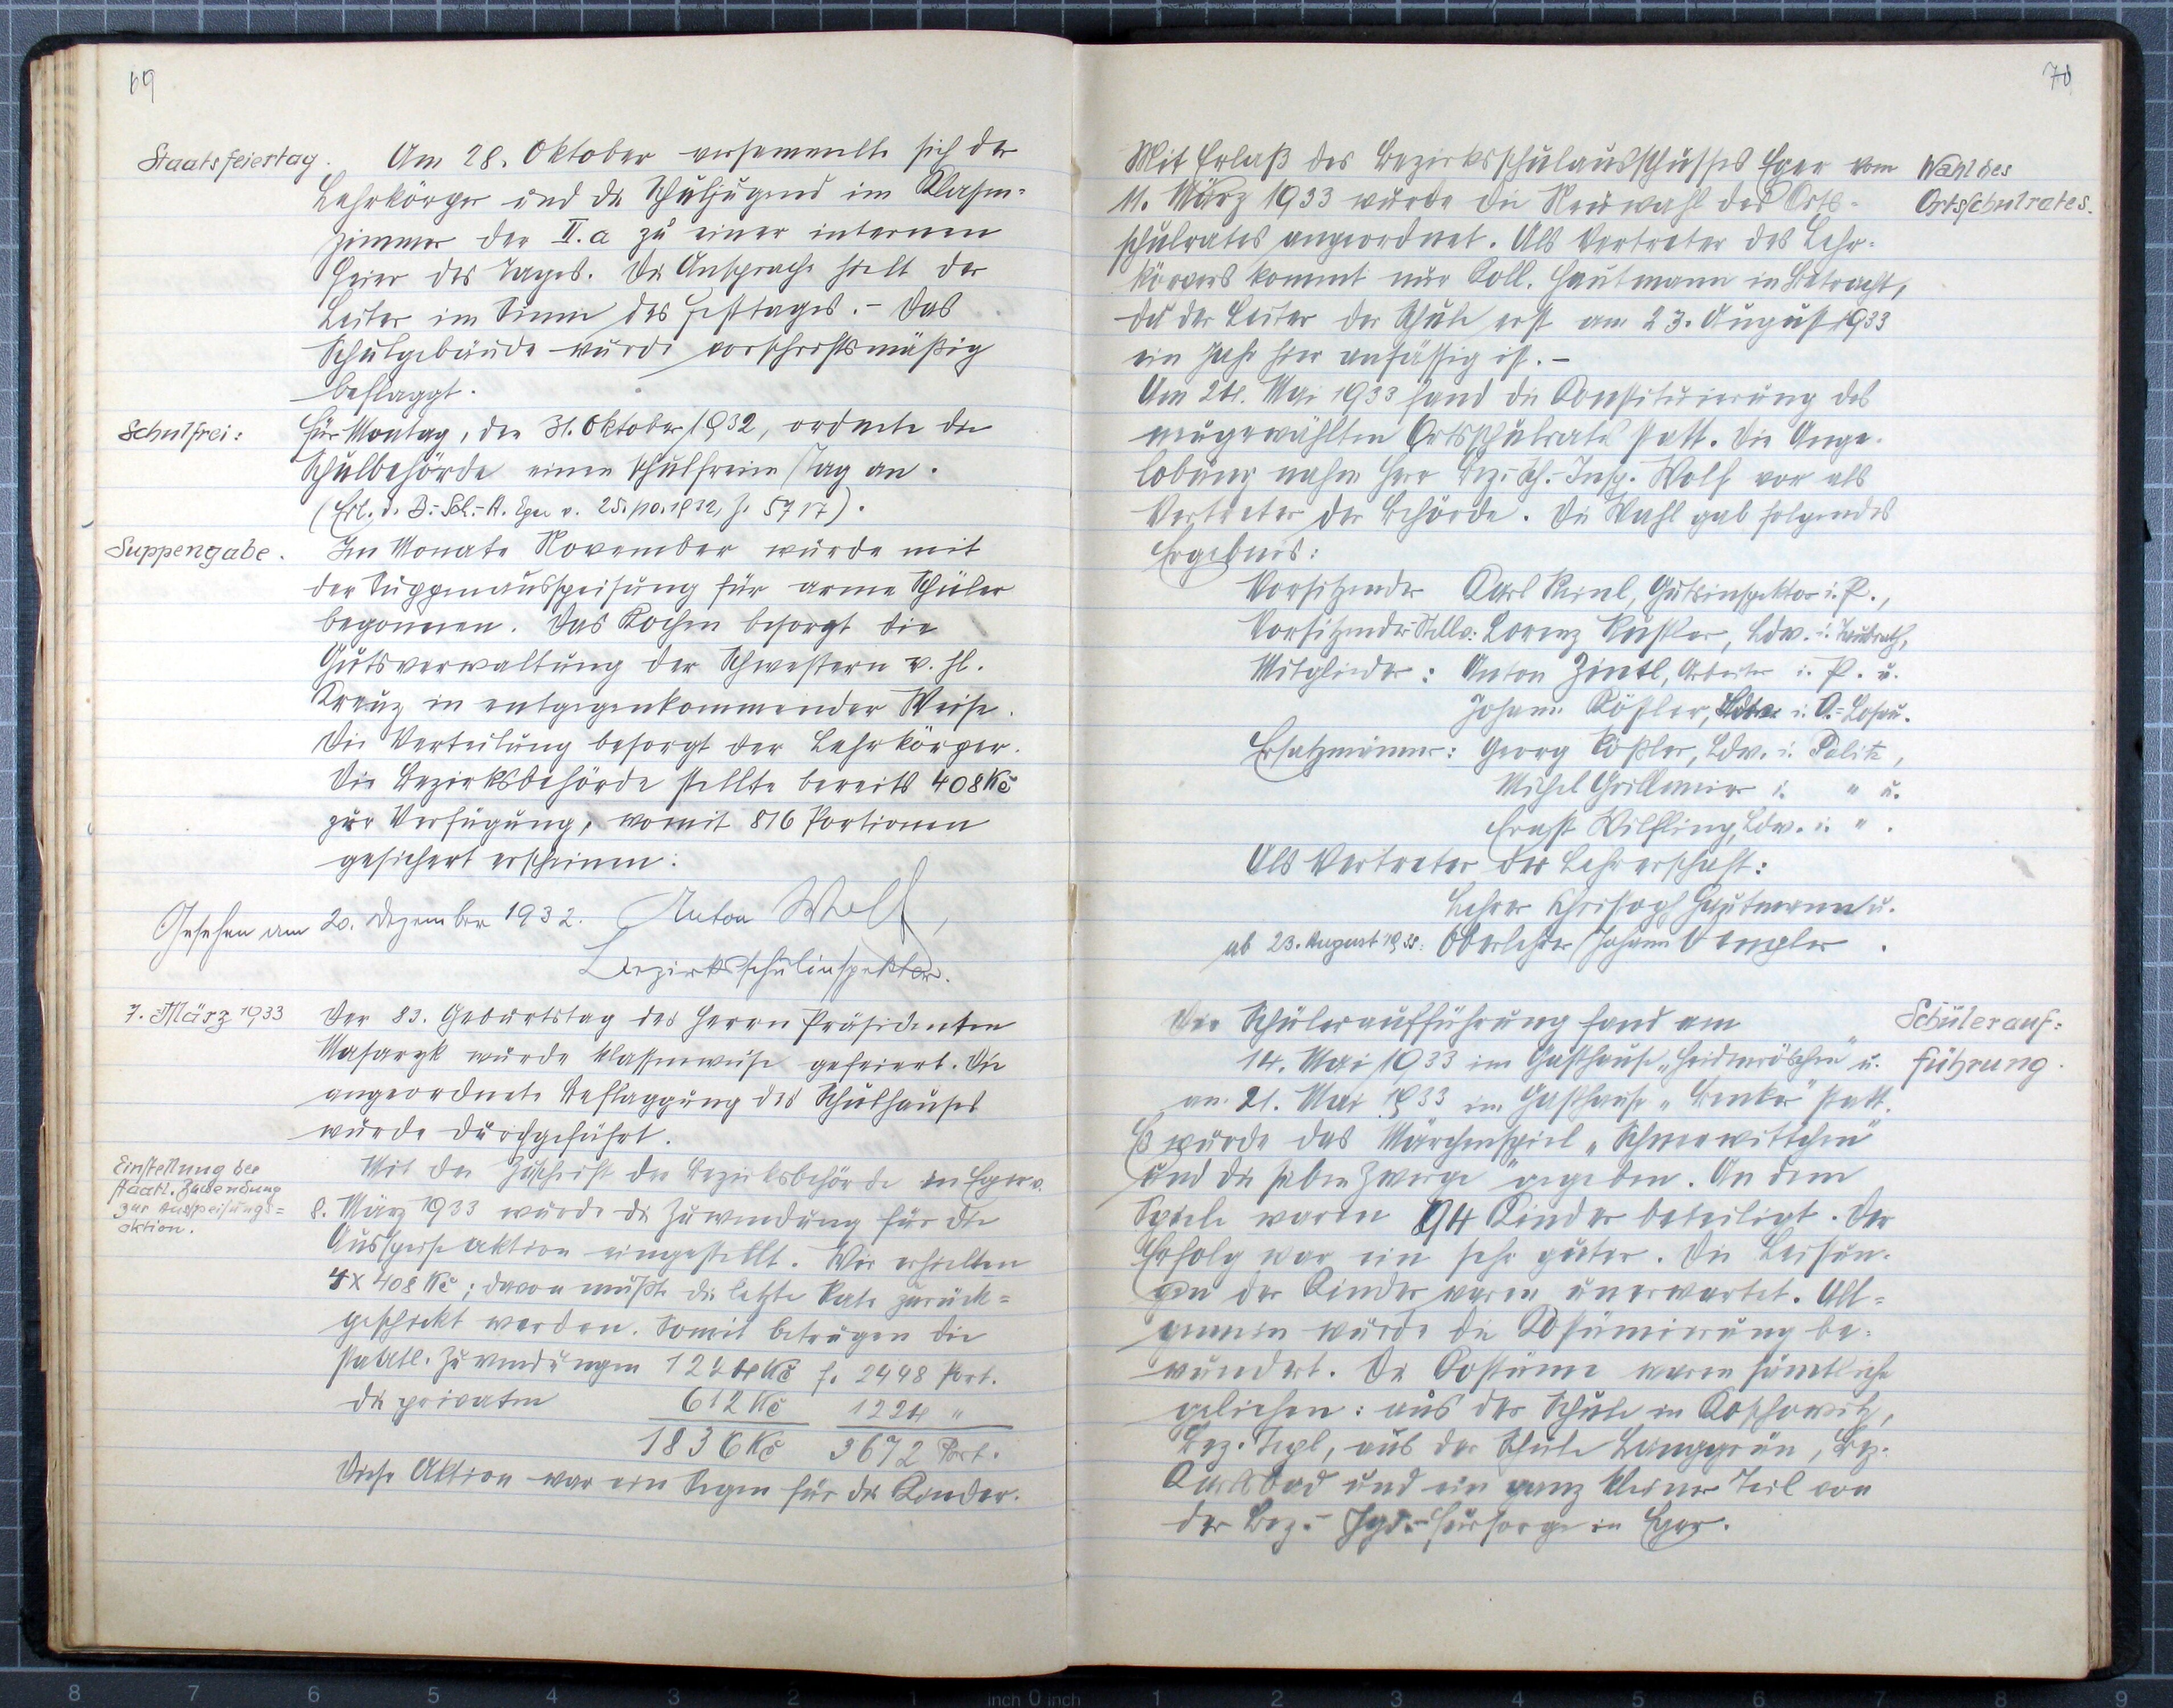 69
Staatsfeiertag. Am 28. Oktober versammelte sich der
Lehrkörper und die Schuljugend im Klassen-
zimmer der II.a zu einer internen
Feier des Tages. Die Ansprache hielt der
Leiter im Sinne des Festtages. – Das
Schulgebäude wurde vorschriftsmäßig
beflaggt.
Schulfrei: Für Montag, den 31. Oktober 1932, ordnete die
Schulbehörde einen schulfreien Tag an.
(Erl. d. B.-Sch.-A. Eger v. 25./10.1932, Z. 5717).
Suppengabe. Im Monate November wurde mit
der Suppenausspeisung für arme Schüler
begonnen. Das Kochen besorgt die
Gutsverwaltung der Schwestern v. hl.
Kreuz in entgegenkommender Weise.
Die Verteilung besorgt der Lehrkörper.
Die Bezirksbehörde stellte bereits 408 Kč
zur Verfügung, womit 816 Portionen
gesichert erscheinen.
Gesehen am 20. Dezember 1932. Anton Wolf,
Bezirksschulinspektor.
7. März 1933 Der 83. Geburtstag des Herrn Präsidenten
Masaryk wurde klassenweise gefeiert. Die
angeordnete Beflaggung des Schulhauses
wurde durchgeführt.
Einstellung der
staatl. Zuwendung
zur Ausspeisungs=
aktion.
Mit der Zuschrift der Bezirksbehörde in Eger v.
8. März 1933 wurde die Zuwendung für die
Ausspeiseaktion eingestellt. Wir erhielten
4x 408 Kč; davon mußte die letzte Rate zurück=
geschickt werden. Somit betrugen die
staatl. Zuwendungen 1224 Kč f. 2448 Port.
die privaten 612 Kč 1224 "
1836 Kč 3672 Port.
Diese Aktion war ein Segen für die Kinder.
70
Wahl des
Ortsschulrates.
Mit Erlaß des Bezirksschulausschusses Eger vom
11. März 1933 wurde die Neuwahl des Orts-
schulrates angeordnet. Als Vertreter des Lehr-
körpers kommt nur Koll. Hautmann in Betracht,
da der Leiter der Schule erst am 23. August 1933
ein Jahr hier ansässig ist. –
Am 24. Mai 1933 fand die Konstituierung des
neugewählten Ortsschulrates statt. Die Ange-
lobung nahm Herr Bez.-Sch.-Insp. Wolf vor als
Vertreter der Behörde. Die Wahl gab folgendes
Ergebnis:
Vorsitzender Karl Kernl, Gutsinspektor i. P.,
Vorsitzender-Stellv.: Lorenz Lustler, Ldw. i.
Mitglieder: Anton Zintl, Arbeiter i. P. u.
Johann Rößler, i. O.-Losau.
Ersatzmänner: Georg Rößler, Ldw. i. Palitz,
Michel Grillmeier i. " u.
Ernst Wilfling, Ldw. i. " .
Als Vertreter der Lehrerschaft:
Lehrer Christoph Hautmann u.
ab 23. August 1933: Oberlehrer Johann .
Schülerauf=
führung.
Die Schüleraufführung fand am
14. Mai 1933 im Gasthause „Heidenröschen" u.
am 21. Mai 1933 im Gasthause „Benker" statt.
Es wurde das Märchenspiel „Schneewittchen
und die sieben Zwerge" gegeben. An dem
Spiele waren 94 Kinder beteiligt. Der
Erfolg war ein sehr guter. Die Leistun-
gen der Kinder waren unerwartet. All=
gemein wurde die Kostümierung be-
wundert. Die Kostüme waren sämtliche
geliehen: aus der Schule in Koschowitz,
Bez. Tepl, aus der Schule Langgrün, Bez.
Karlsbad und ein ganz kleiner Teil von
der Bez.-Jgd.-fürsorge in Eger.